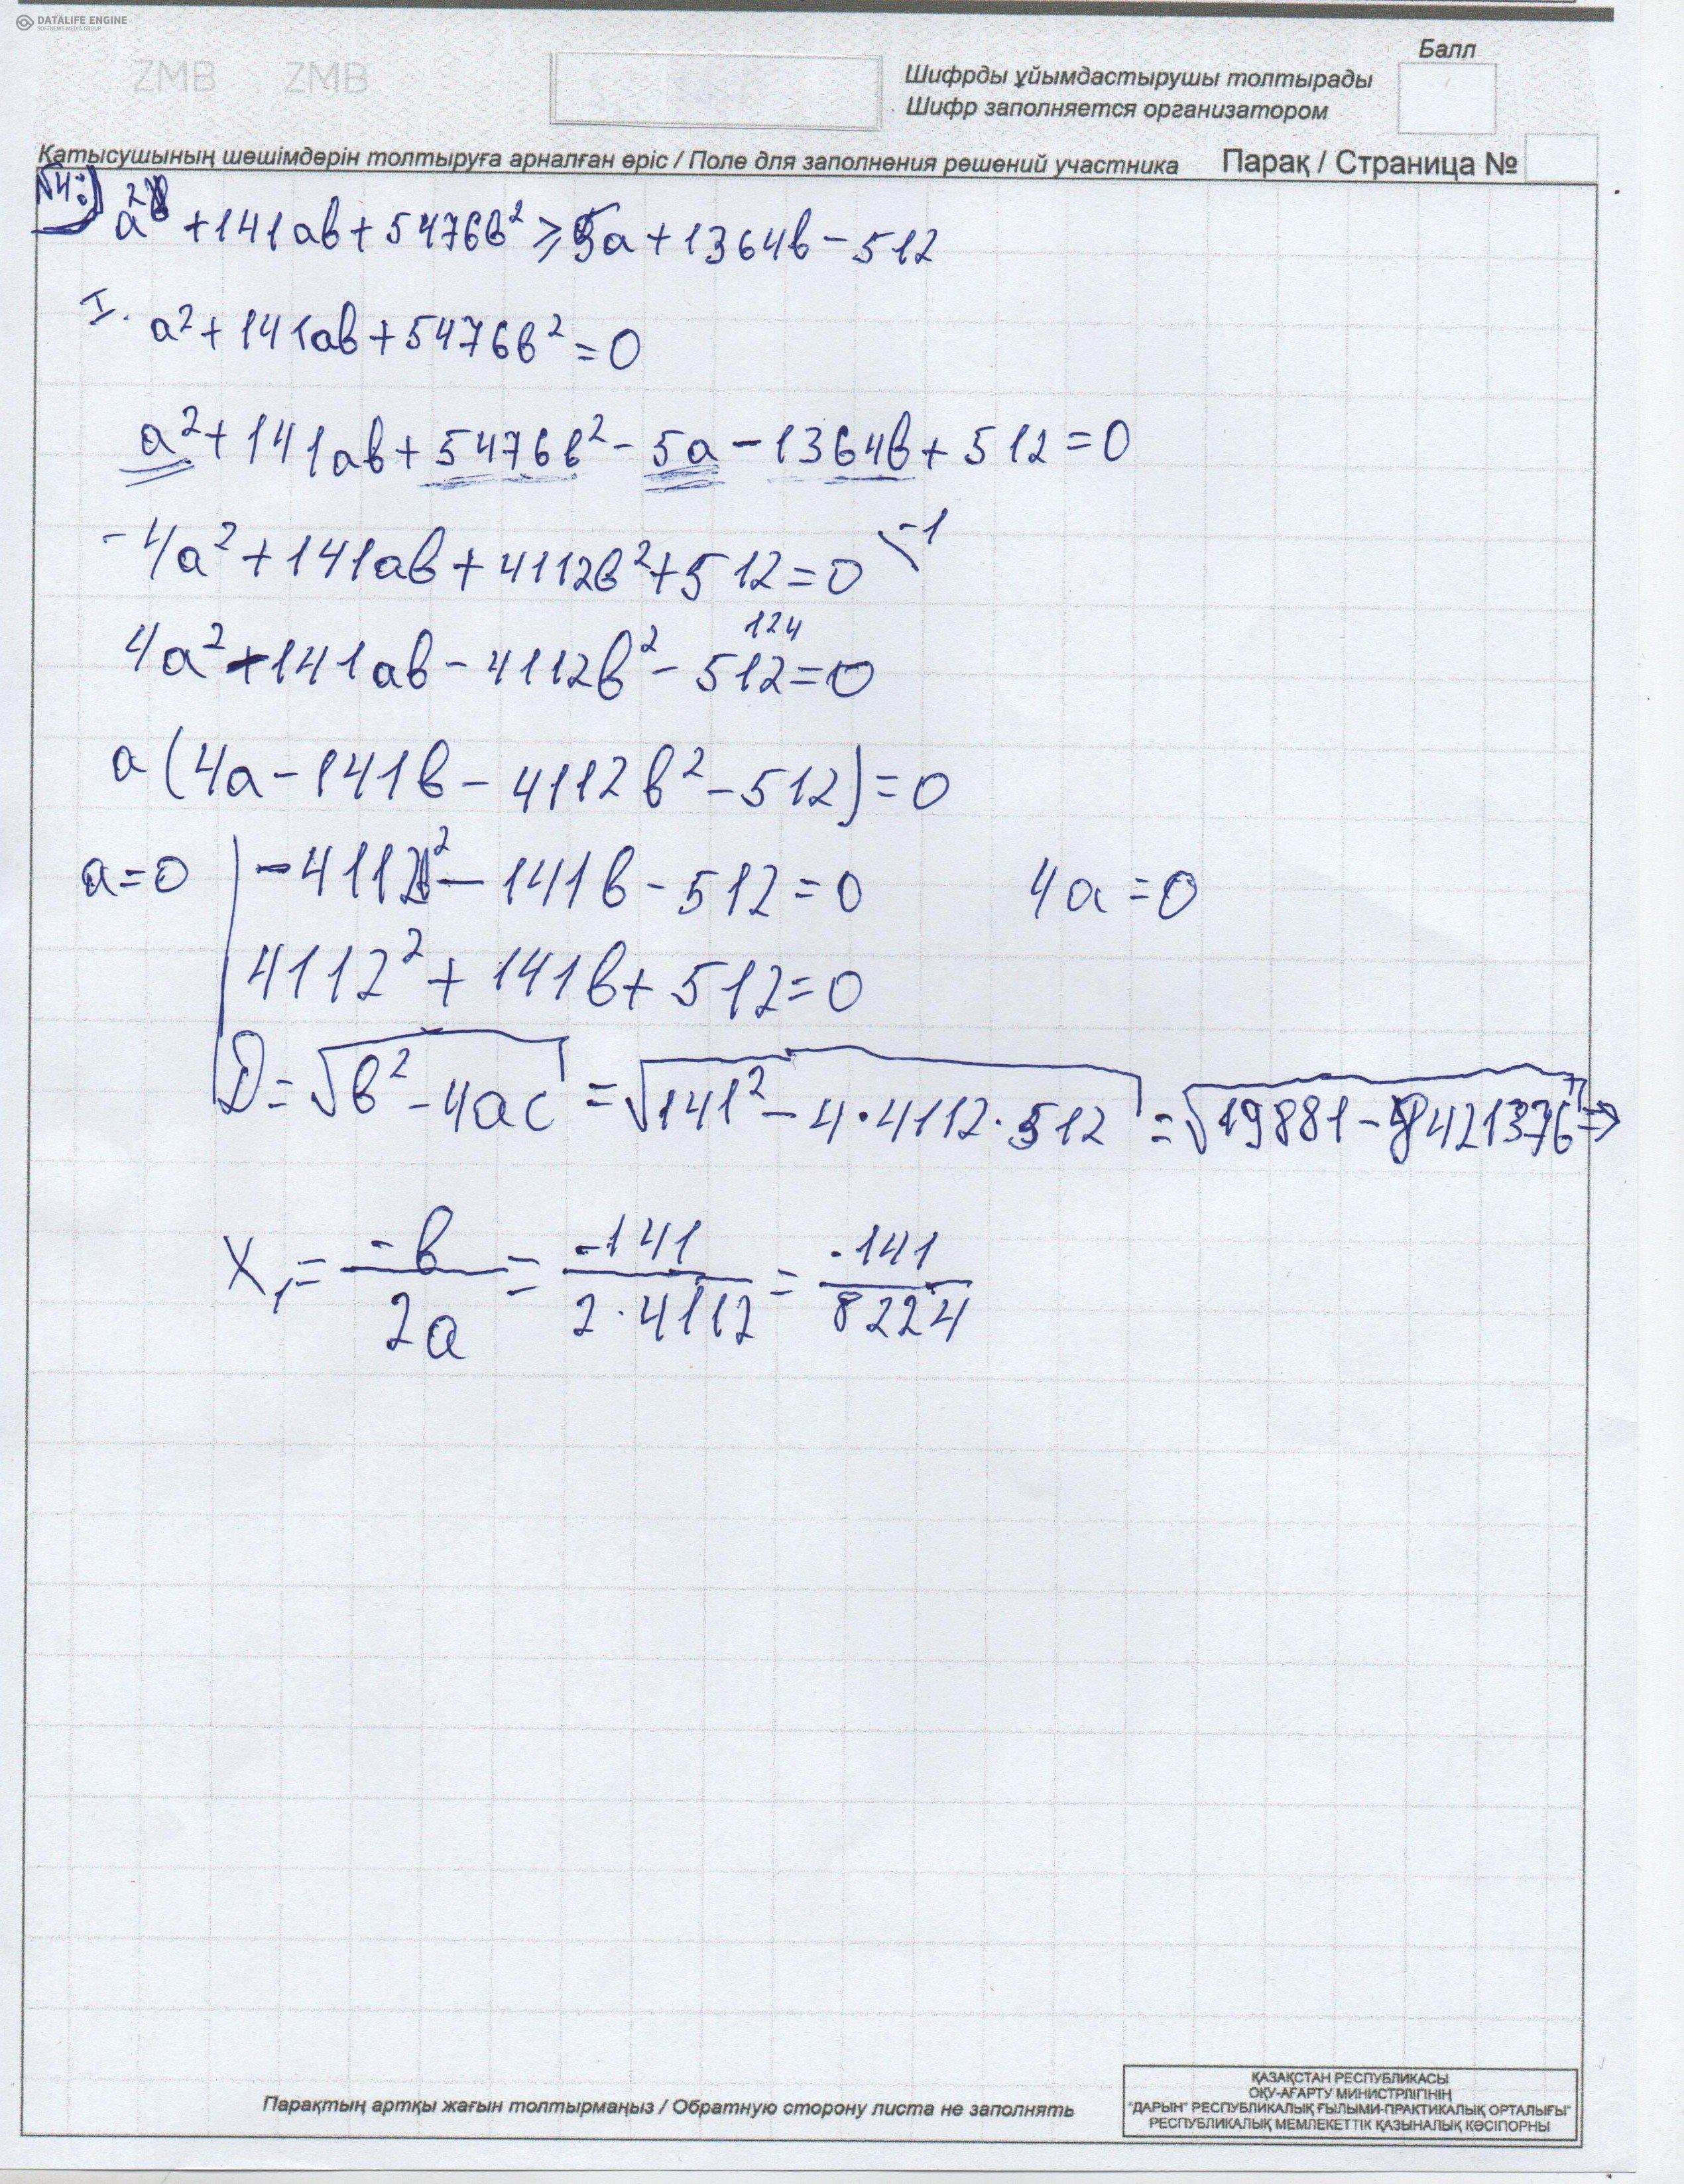 DATALIFE ENGINE
SOFTNEWS MEDIA GROUP
ZMB ZMB
Балл
Шифрды ұйымдастырушы толтырады
Шифр заполняется организатором
Қатысушының шешімдерін толтыруға арналған өріс / Поле для заполнения решений участника Парақ / Страница №
№4:
a² + 141ab + 5476b² ≥ 5a + 1364b - 512
I. a² + 141ab + 5476b² = 0
a² + 141ab + 5476b² - 5a - 1364b + 512 = 0
-4a² + 141ab + 4112b² + 512 = 0 \ -1
124
4a² - 141ab - 4112b² - 512 = 0
a (4a - 141b - 4112b² - 512) = 0
a = 0 | -4112b² - 141b - 512 = 0 4a = 0
4112² + 141b + 512 = 0
D = √b² - 4ac = √141² - 4·4112·512 = √19881 - 8421376 ⇒
X₁ = -b/2a = -141/2·4112 = -141/8224
Парақтың артқы жағын толтырмаңыз / Обратную сторону листа не заполнять
ҚАЗАҚСТАН РЕСПУБЛИКАСЫ
ОҚУ-АҒАРТУ МИНИСТРЛІГІНІҢ
"ДАРЫН" РЕСПУБЛИКАЛЫҚ ҒЫЛЫМИ-ПРАКТИКАЛЫҚ ОРТАЛЫҒЫ"
РЕСПУБЛИКАЛЫҚ МЕМЛЕКЕТТІК ҚАЗЫНАЛЫҚ КӘСІПОРНЫ